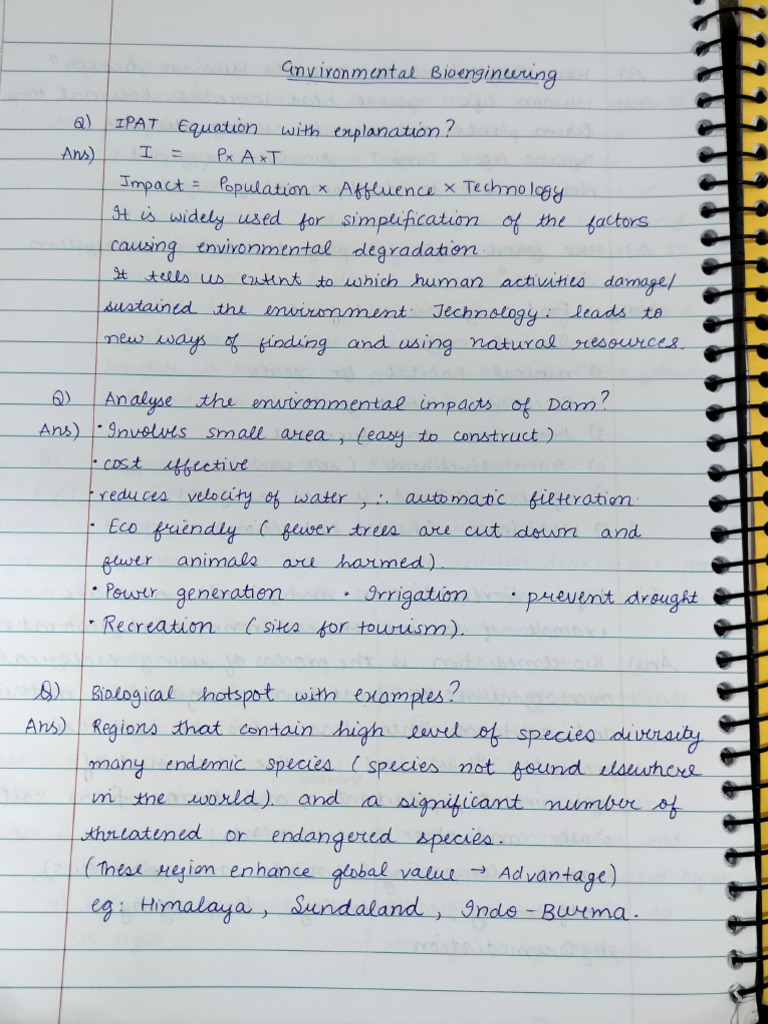 Environmental Bioengineering
Q) IPAT Equation with explanation?
Ans) I = P x A x T
Impact = Population x Affluence x Technology
It is widely used for simplification of the factors
causing environmental degradation.
It tells us extent to which human activities damage/
sustained the environment. Technology: leads to
new ways of finding and using natural resources.
Q) Analyse the environmental impacts of Dam?
Ans) • Involves small area, (easy to construct)
• cost effective
• reduces velocity of water, ∴ automatic filteration.
• Eco friendly ( fewer trees are cut down and
fewer animals are harmed).
• Power generation • Irrigation • prevent drought
• Recreation ( sites for tourism).
Q) Biological hotspot with examples?
Ans) Regions that contain high level of species diversity
many endemic species ( species not found elsewhere
in the world). and a significant number of
threatened or endangered species.
(These region enhance global value → Advantage)
eg: Himalaya, Sundaland, Indo-Burma.